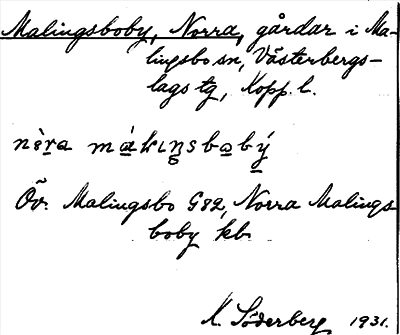 Malingsboby, Norra, gårdar i Ma-
lingsbo sn, Västerbergs-
lags tg, Kopp. l.
nè̱ra má̱kıŋsbo̱bý̱
Öv. Malingsbo G82, Norra Malings-
boby kb.
K. Söderberg 1931.